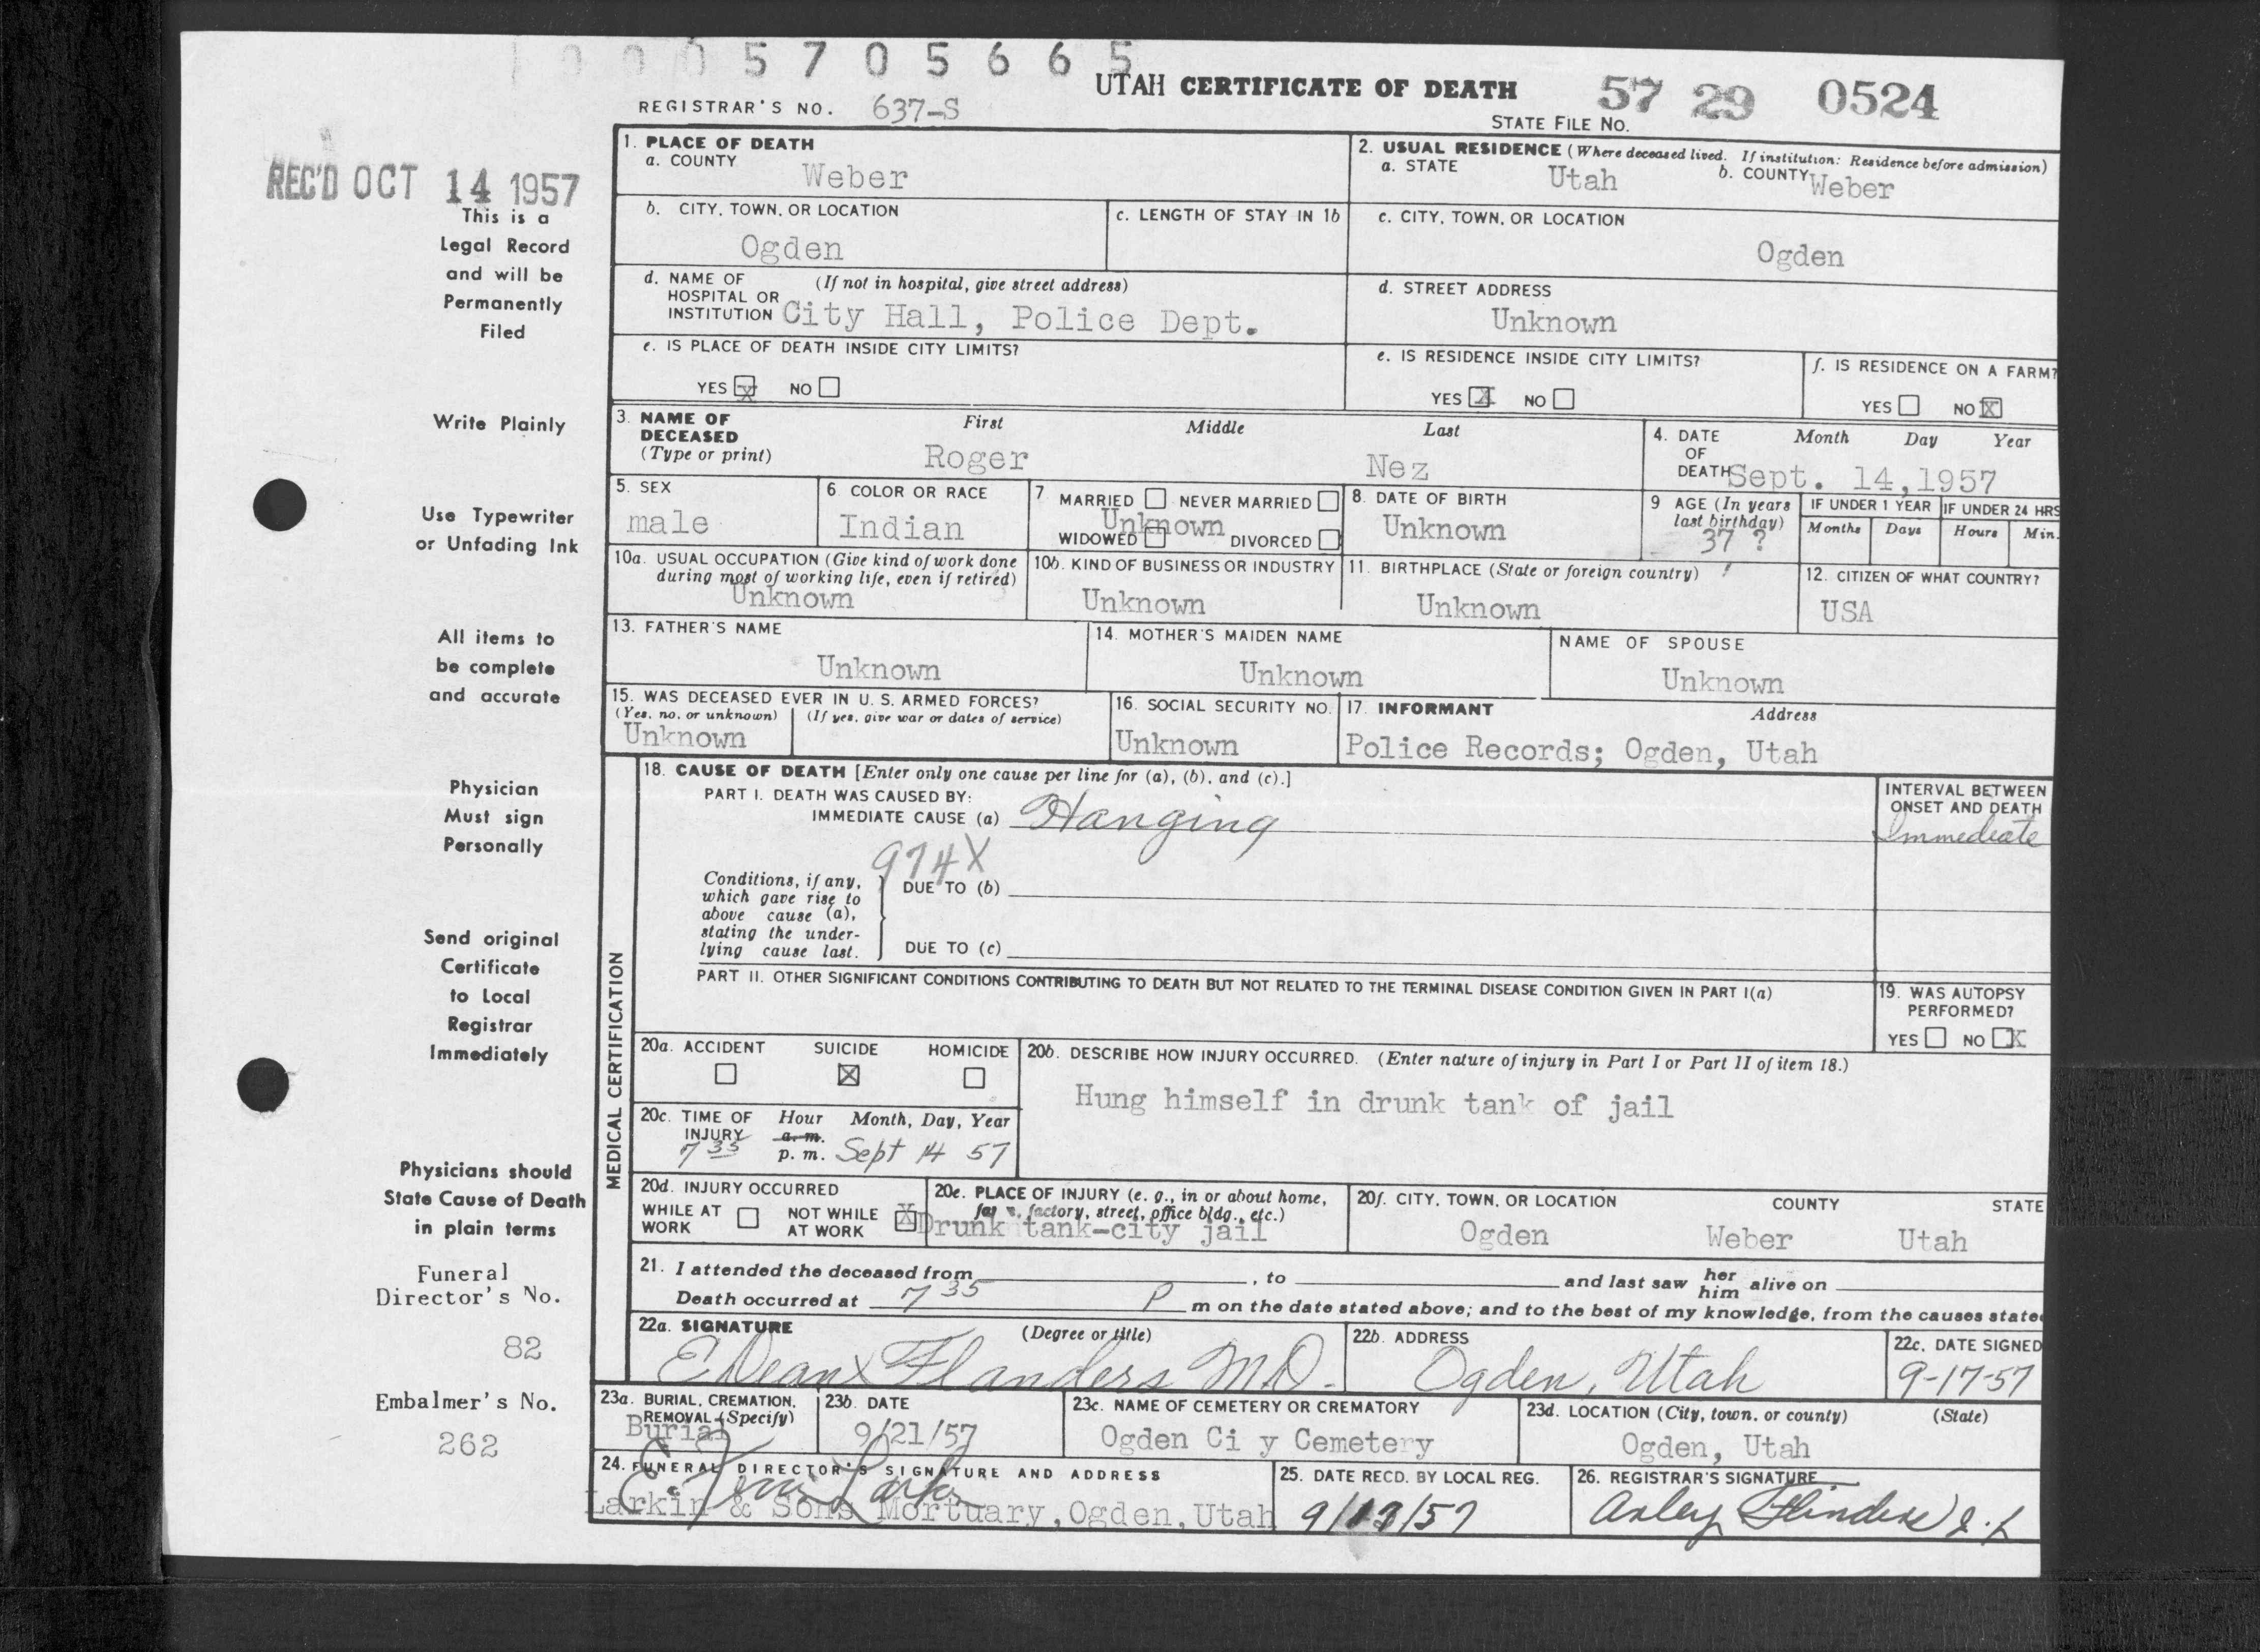 0005705665
UTAH CERTIFICATE OF DEATH
57 29 0524
REGISTRAR'S NO. 637-S
STATE FILE NO.
REC'D OCT 14 1957
This is a
Legal Record
and will be
Permanently
Filed
Write Plainly
Use Typewriter
or Unfading Ink
All items to
be complete
and accurate
Physician
Must sign
Personally
Send original
Certificate
to Local
Registrar
Immediately
Physicians should
State Cause of Death
in plain terms
Funeral
Director's No.
82
Embalmer's No.
262
1. PLACE OF DEATH
a. COUNTY
Weber
2. USUAL RESIDENCE (Where deceased lived. If institution: Residence before admission)
a. STATE Utah b. COUNTY Weber
b. CITY, TOWN, OR LOCATION
Ogden
c. LENGTH OF STAY IN 1b
c. CITY, TOWN, OR LOCATION
Ogden
d. NAME OF (If not in hospital, give street address)
HOSPITAL OR
INSTITUTION City Hall, Police Dept.
d. STREET ADDRESS
Unknown
e. IS PLACE OF DEATH INSIDE CITY LIMITS?
YES X NO
e. IS RESIDENCE INSIDE CITY LIMITS?
YES X NO
f. IS RESIDENCE ON A FARM?
YES NO X
3. NAME OF First Middle Last
DECEASED
(Type or print) Roger Nez
4. DATE Month Day Year
OF
DEATH Sept. 14,1957
5. SEX
male
6. COLOR OR RACE
Indian
7 MARRIED NEVER MARRIED
Unknown
WIDOWED DIVORCED
8. DATE OF BIRTH
Unknown
9 AGE (In years
last birthday)
37 ?
IF UNDER 1 YEAR IF UNDER 24 HRS
Months Days Hours Min.
10a. USUAL OCCUPATION (Give kind of work done
during most of working life, even if retired)
Unknown
10b. KIND OF BUSINESS OR INDUSTRY
Unknown
11. BIRTHPLACE (State or foreign country)
Unknown
12. CITIZEN OF WHAT COUNTRY?
USA
13. FATHER'S NAME
Unknown
14. MOTHER'S MAIDEN NAME
Unknown
NAME OF SPOUSE
Unknown
15. WAS DECEASED EVER IN U. S. ARMED FORCES?
(Yes, no, or unknown) (If yes, give war or dates of service)
Unknown
16. SOCIAL SECURITY NO.
Unknown
17. INFORMANT Address
Police Records; Ogden, Utah
MEDICAL CERTIFICATION
18. CAUSE OF DEATH [Enter only one cause per line for (a), (b), and (c).]
PART I. DEATH WAS CAUSED BY:
IMMEDIATE CAUSE (a) Hanging
INTERVAL BETWEEN
ONSET AND DEATH
Immediate
974X
Conditions, if any,
which gave rise to
above cause (a),
stating the under-
lying cause last.
DUE TO (b)
DUE TO (c)
PART II. OTHER SIGNIFICANT CONDITIONS CONTRIBUTING TO DEATH BUT NOT RELATED TO THE TERMINAL DISEASE CONDITION GIVEN IN PART I(a)
19. WAS AUTOPSY
PERFORMED?
YES NO X
20a. ACCIDENT SUICIDE HOMICIDE
X
20b. DESCRIBE HOW INJURY OCCURRED. (Enter nature of injury in Part I or Part II of item 18.)
Hung himself in drunk tank of jail
20c. TIME OF Hour Month, Day, Year
INJURY a. m.
7 35 p. m. Sept 14 57
20d. INJURY OCCURRED
WHILE AT NOT WHILE X
WORK AT WORK
20e. PLACE OF INJURY (e. g., in or about home,
farm, factory, street, office bldg., etc.)
Drunk tank-city jail
20f. CITY, TOWN, OR LOCATION COUNTY STATE
Ogden Weber Utah
21. I attended the deceased from , to and last saw her him alive on
Death occurred at 7 35 P m on the date stated above; and to the best of my knowledge, from the causes stated
22a. SIGNATURE (Degree or title)
E Dean Flanders MD.
22b. ADDRESS
Ogden, Utah
22c. DATE SIGNED
9-17-57
23a. BURIAL, CREMATION,
REMOVAL (Specify)
Burial
23b. DATE
9/21/57
23c. NAME OF CEMETERY OR CREMATORY
Ogden Ci y Cemetery
23d. LOCATION (City, town, or county) (State)
Ogden, Utah
24. FUNERAL DIRECTOR'S SIGNATURE AND ADDRESS
Larkin & Sons Mortuary, Ogden, Utah
25. DATE RECD. BY LOCAL REG.
26. REGISTRAR'S SIGNATURE